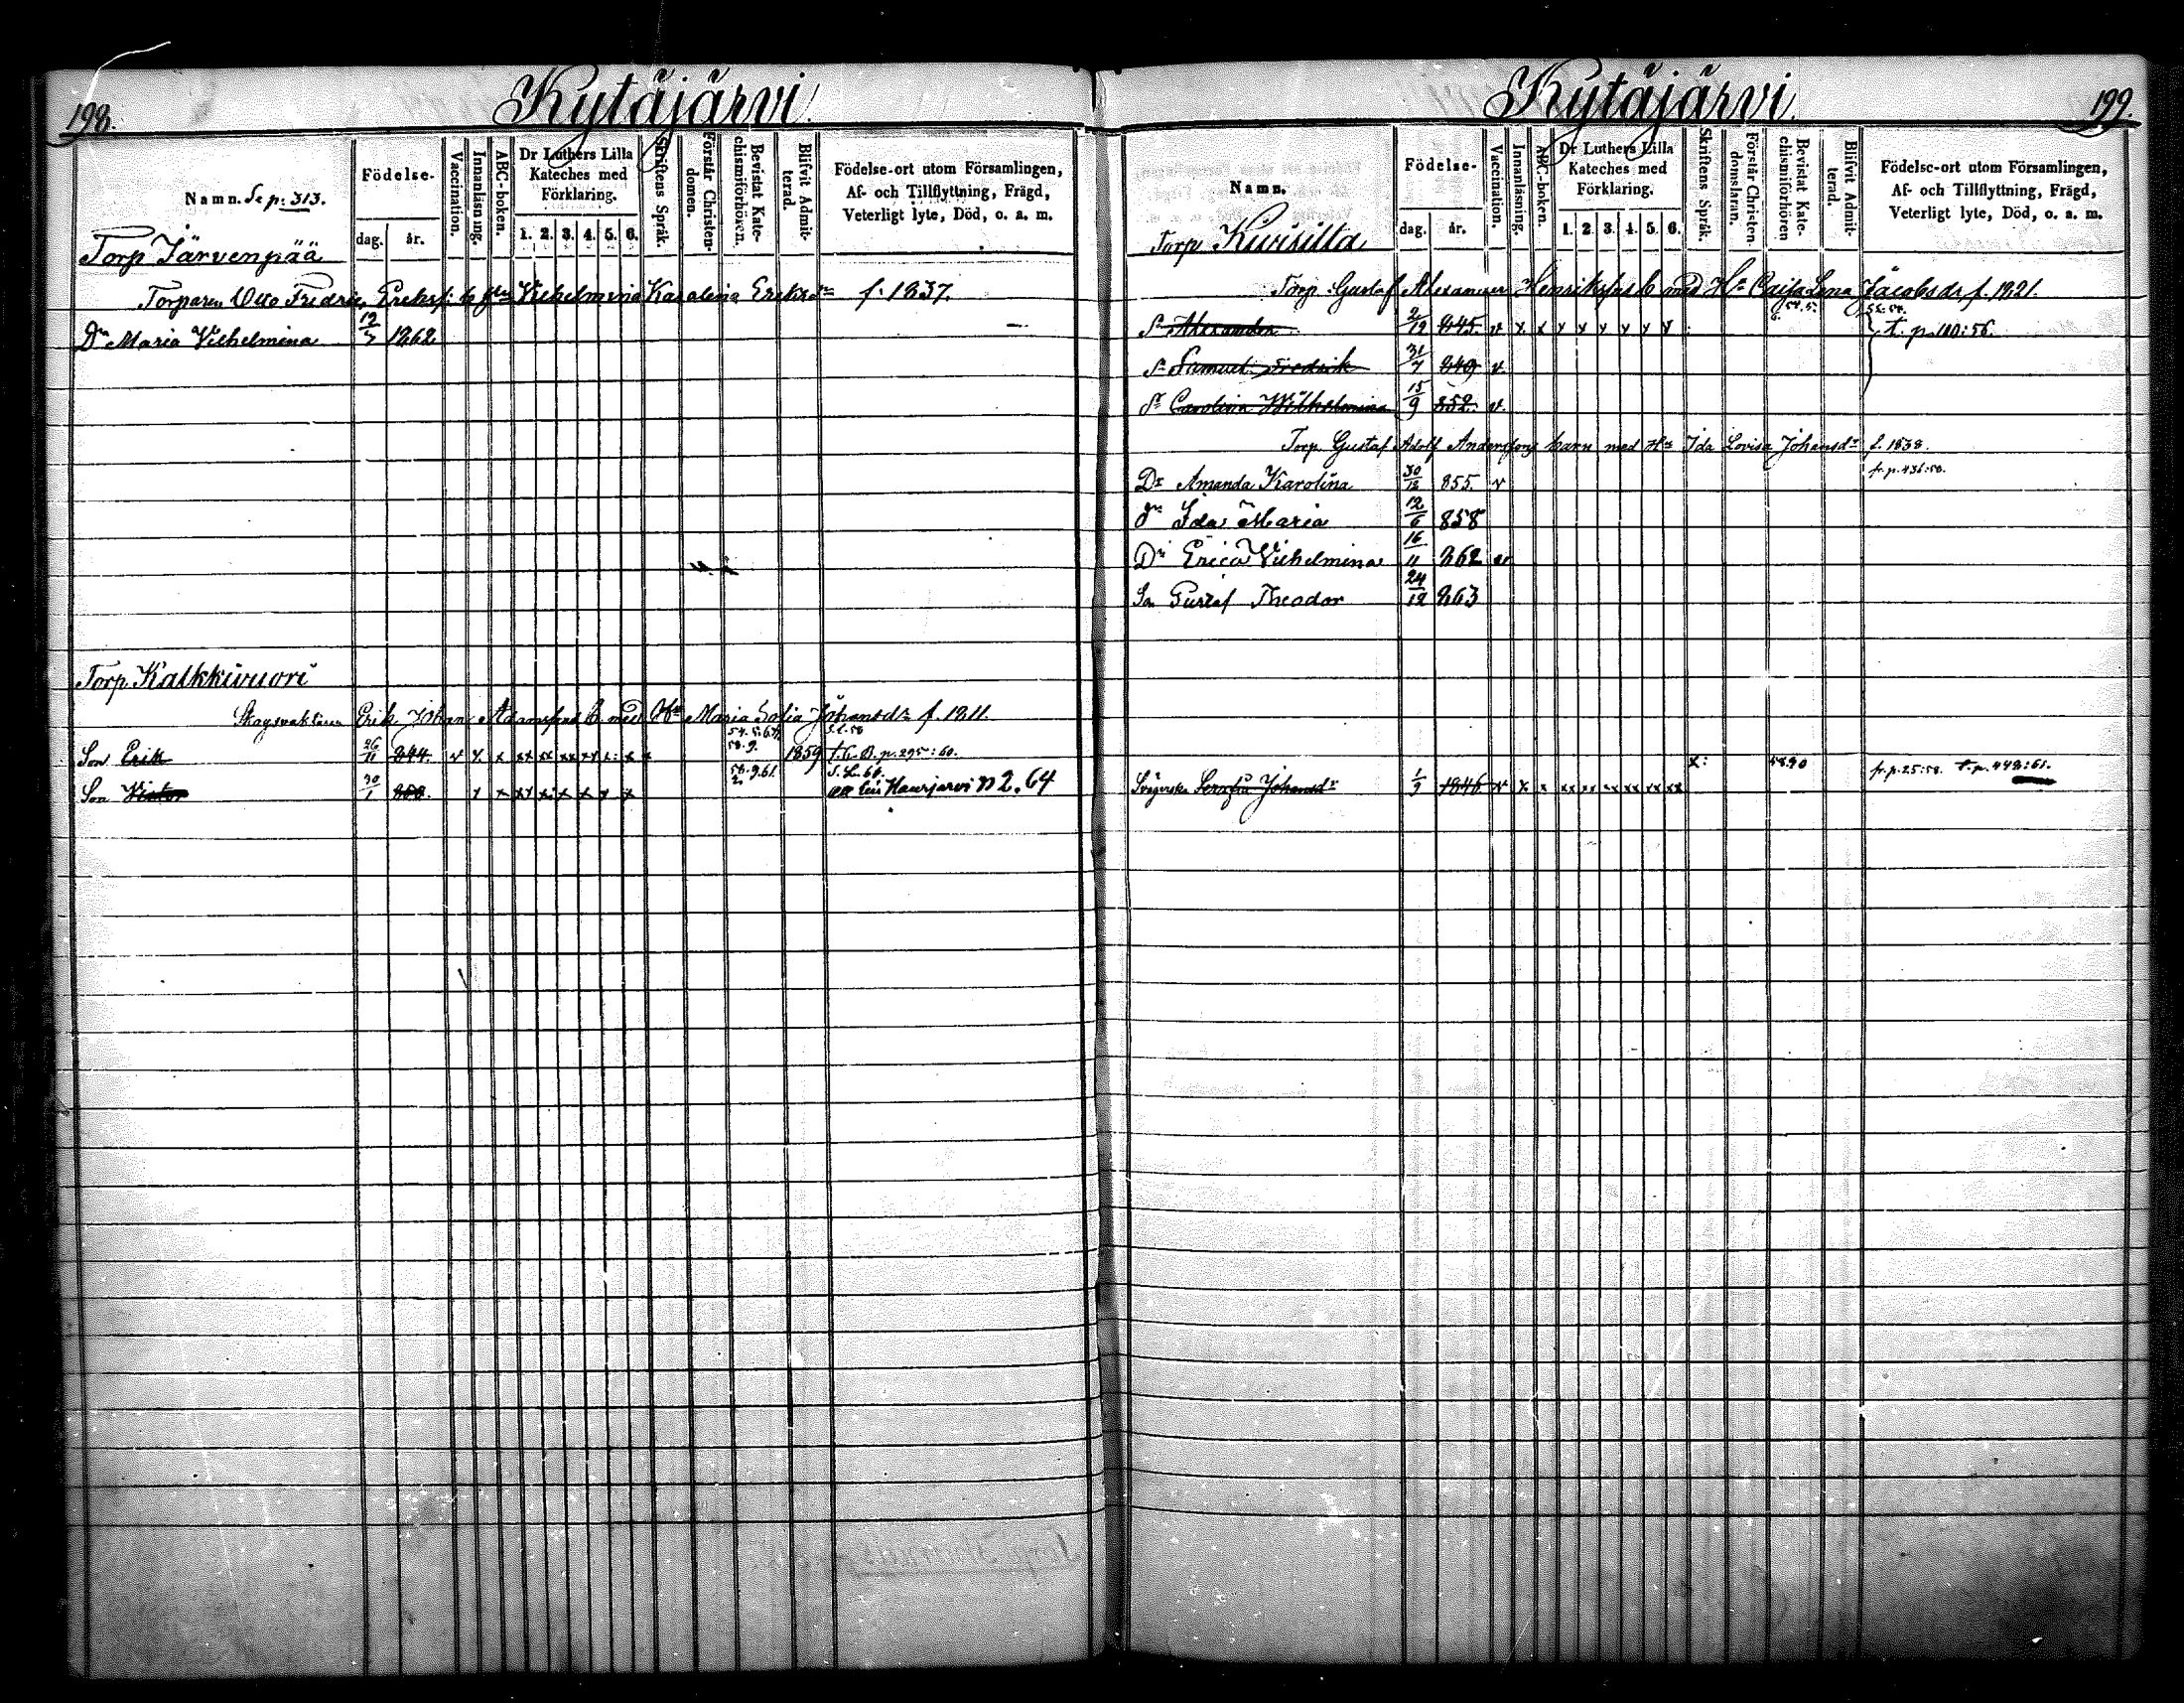 198.
Kytäjärvi.
Namn. Se p: 313.
Födelse-
dag.
år.
Vaccination.
Innanläsning.
ABC-boken.
Dr Luthers Lilla Kateches med Förklaring.
1. 2. 3. 4. 5. 6.
Skriftens Språk.
Förstår Christen-domen.
Bevistat Kate-chismiförhören.
Blifvit Admit-terad.
Födelse-ort utom Församlingen,
Af- och Tillflyttning, Frägd,
Veterligt lyte, Död, o. a. m.
Torp Järvenpää
Torparen Otto Fredric Eriksf: Vilhelmina Karolina Eriksdr f. 1837.
Dr Maria Vilhelmina 12/3 1862
Torp Kalkkivuori
Skogvaktaren Erik Johan Adamsfns b med Hu Maria Sofia Johansdr f. 1811.
Son Erik 26/11 844. v x x xx xx xx xx x: x 58.9. 1859 t. C. B. p. 295:60.
Son Viktor 30/1 850. x x xx x: x x x x 58.9.61. Haurjarvi N 2. 64
Kytäjärvi.
199.
Namn.
Födelse-
dag.
år.
Vaccination.
Innanläsning.
ABC-boken.
Dr Luthers Lilla Kateches med Förklaring.
1. 2. 3. 4. 5. 6.
Skriftens Språk.
Förstår Christen-domsläran.
Bevistat Kate-chismiförhören
Blifvit Admit-terad.
Födelse-ort utom Församlingen,
Af- och Tillflyttning, Frägd,
Veterligt lyte, Död, o. a. m.
Torp Kivisilta
Torp. Gustaf Alexander Henriksfns b med Hu Caisa Lena Jacobsdr f. 1821.
Sn Alexander 2/12 845. v x x x x x x x x t. p. 110:56.
Sn Samuel Fredrik 31/7 849 v.
Dr Carolina Wilhelmina 15/9 852. v.
Torp. Gustaf Adolf Andersfons barn med Hu Ida Lovisa Johansdr f. 1838.
fr. p. 436:58.
Dr Amanda Karolina 30/12 855. v
Dr Ida Maria 12/6 858
Dr Erica Vilhelmina 16/11 862 v
Son Gustaf Theodor 24/12 863
Svägerska Serafia Johansdr 1/3 1846 v x x xx xx xx xx xx xx x: 58.90 fr. p. 25:58. t. p. 448:61.